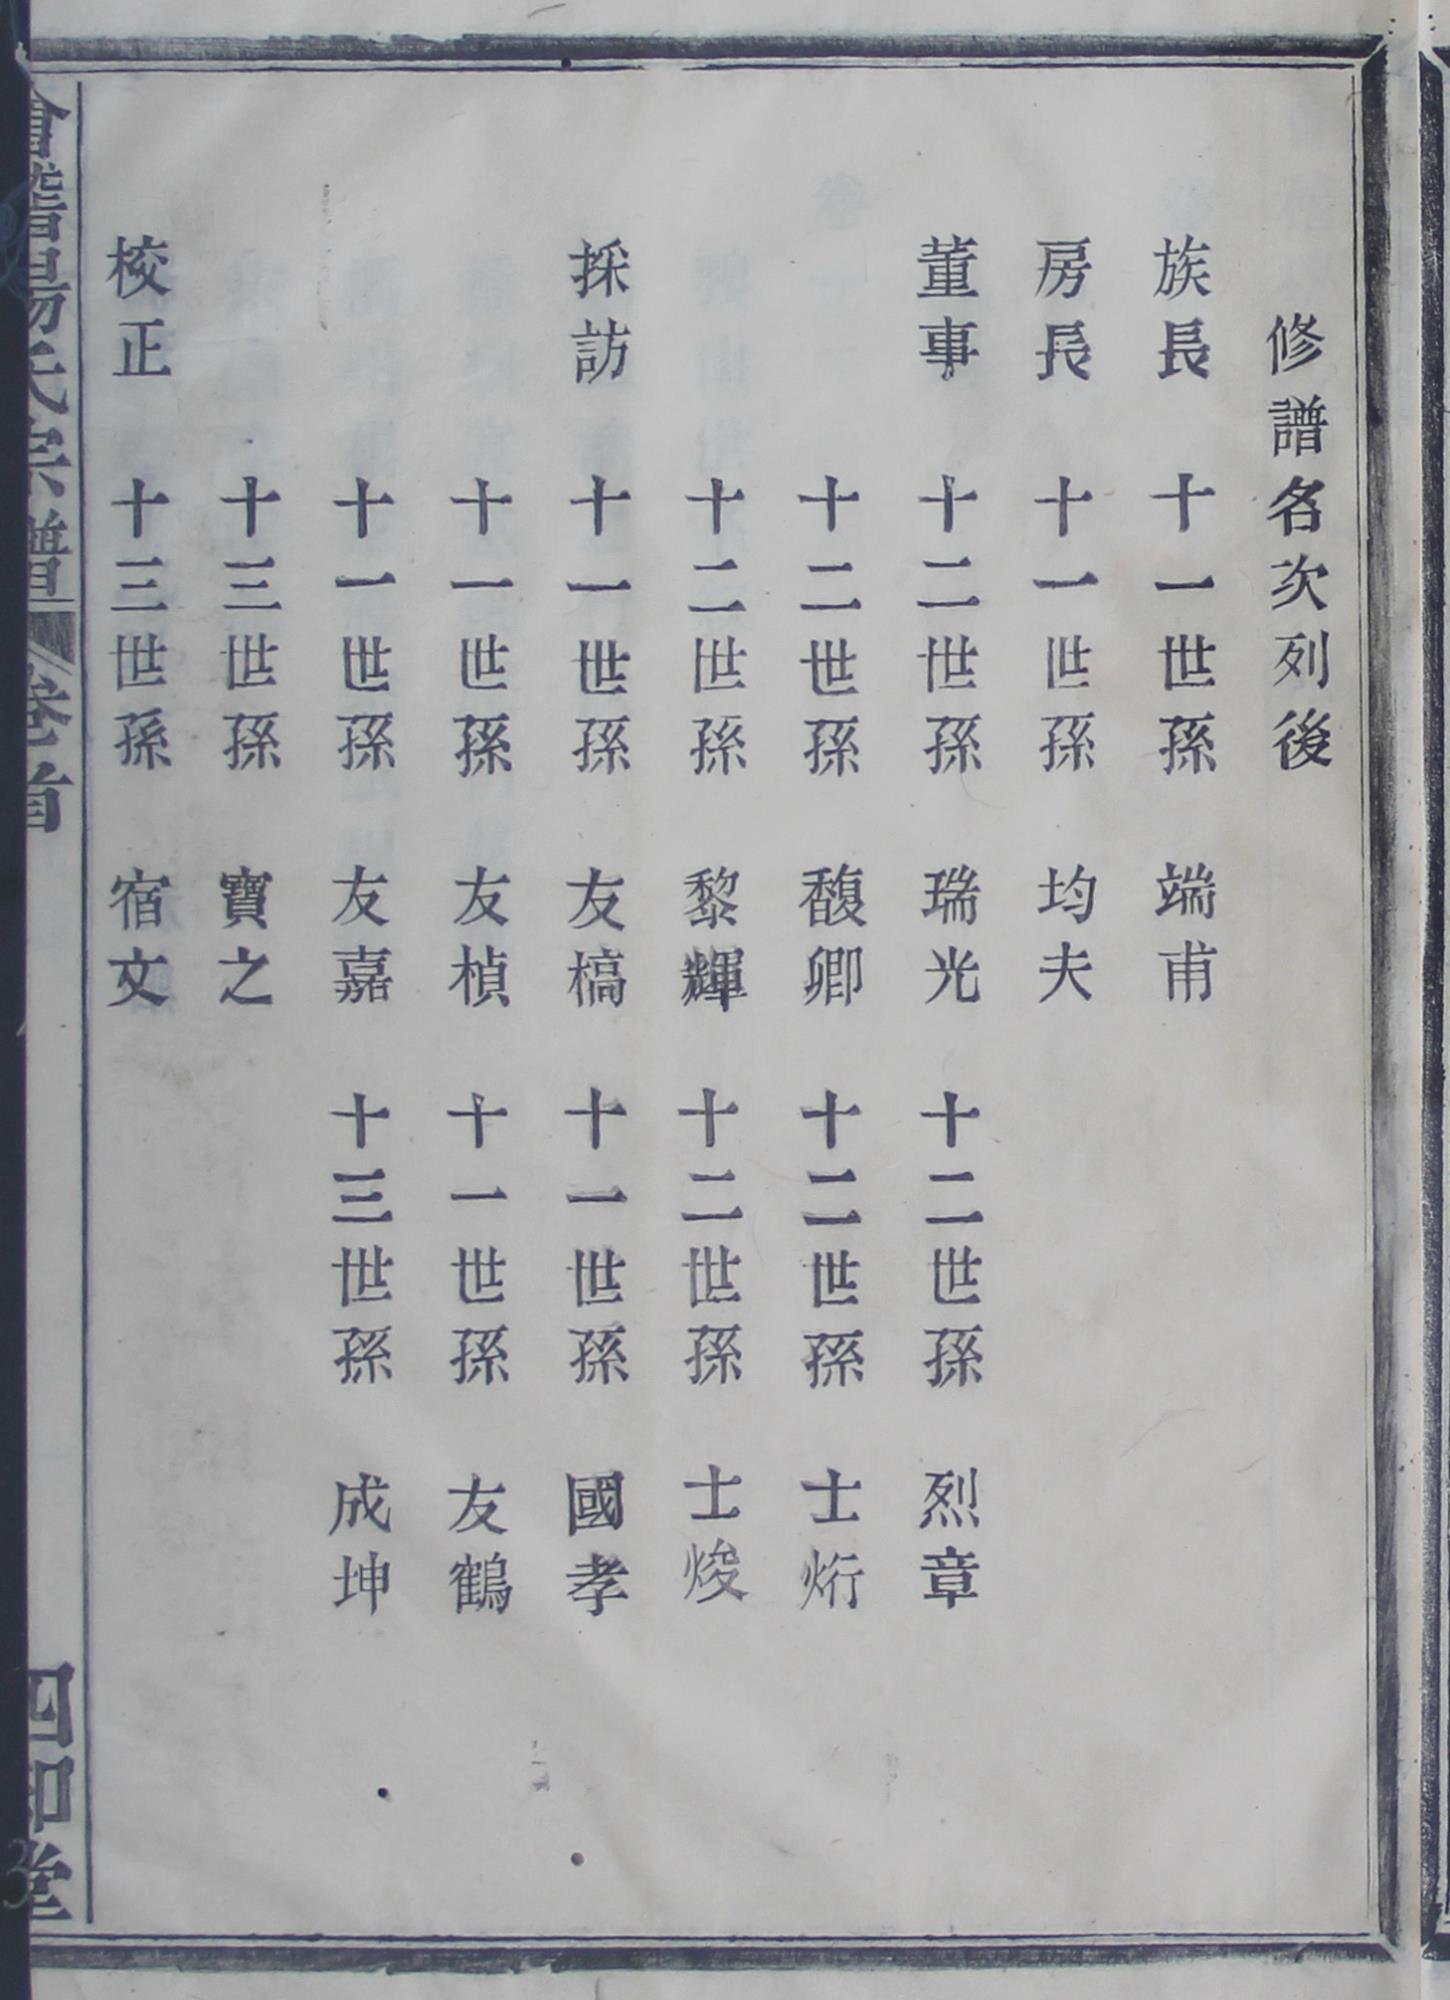 修譜名次列後
族長 十一世孫 端甫
房長 十一世孫 均夫
董事 十二世孫 瑞光 十二世孫 烈章
十二世孫 馥卿 十二世孫 士烆
十二世孫 黎輝 十二世孫 士焌
採訪 十一世孫 友槁 十一世孫 國孝
十一世孫 友楨 十一世孫 友鶴
十一世孫 友嘉 十三世孫 成坤
十三世孫 寶之
校正 十三世孫 宿文
會稽楊氏宗譜 卷首 四知堂